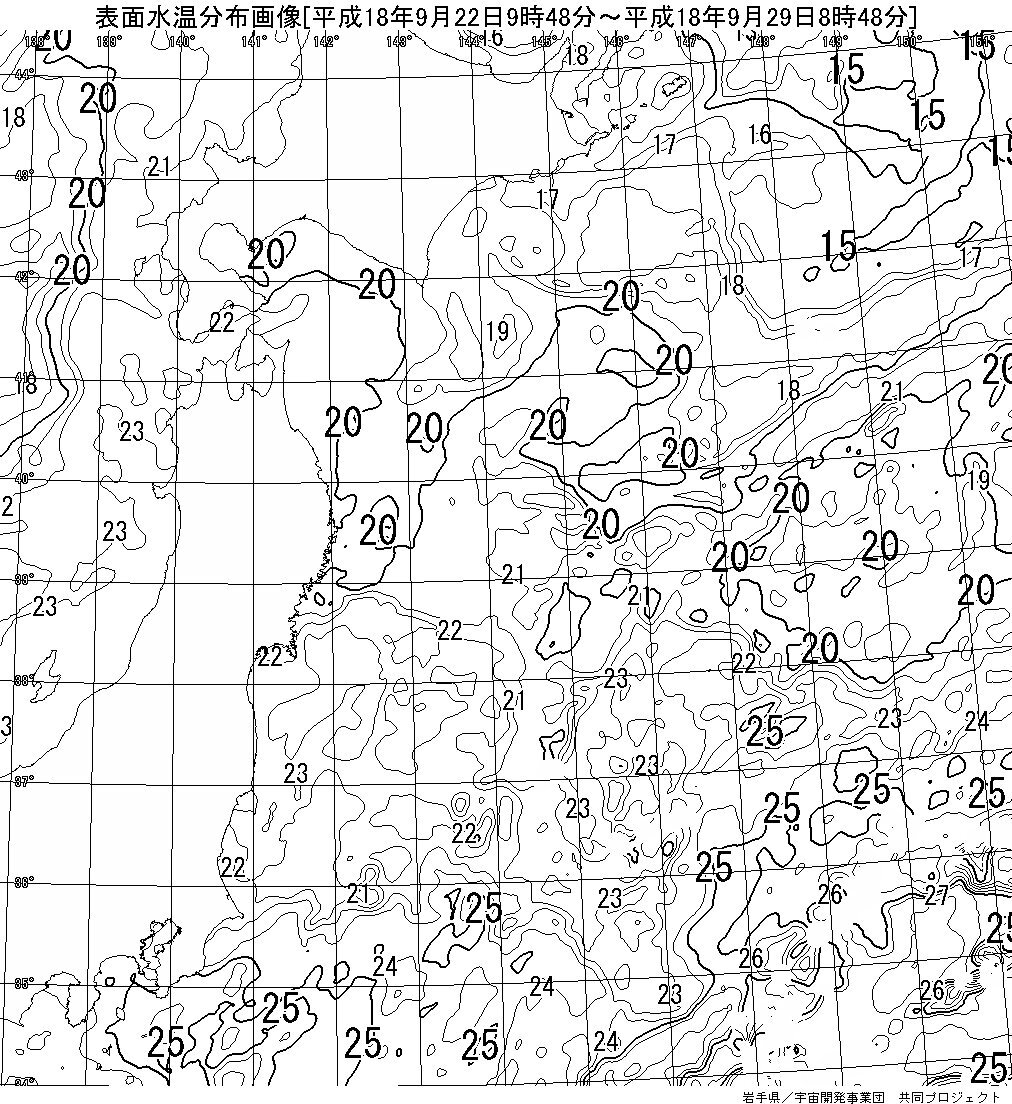 表面水温分布画像[平成18年9月22日9時48分～平成18年9月29日8時48分]
139° 140° 141° 142° 143° 144° 145° 146° 147° 148° 149° 150° 151°
20 16 18 15
44° 20 15
18 15
21 17 16 15
43° 20 17
20 20 15
42° 20 20 17
22 20 18
19 20 20
41° 18 20 18 21
23 20 20 20
20 19
40° 20 20
23 20 20 20
39° 21 20
23 21 22 20
22 22
38° 23
21 25 23 24
23 23
37° 25 25
23 25
22 22 25
36° 21 23 26 27
25 25
24 26
35° 24 23 26
25
25 25 25 24
25
岩手県／宇宙開発事業団　共同プロジェクト